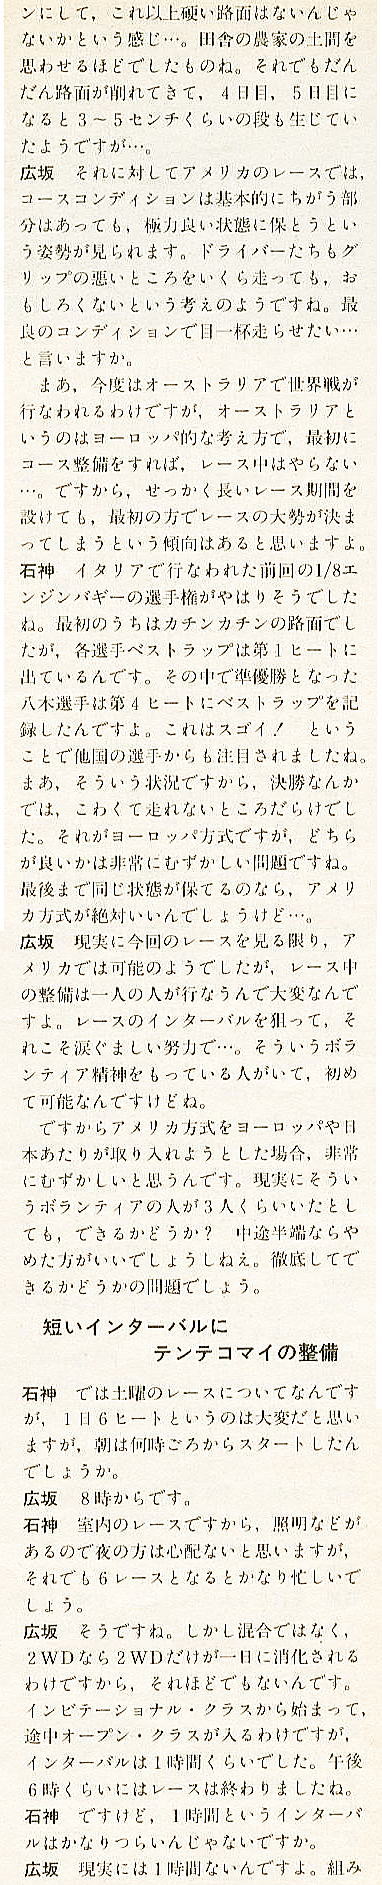 ンにして，これ以上硬い路面はないんじゃ
ないかという感じ…。田舎の農家の土間を
思わせるほどでしたものね。それでもだん
だん路面が削れてきて，4日目，5日目に
なると3～5センチくらいの段も生じてい
たようですが…。
広坂　それに対してアメリカのレースでは，
コースコンディションは基本的にちがう部
分はあっても，極力良い状態に保とうとい
う姿勢が見られます。ドライバーたちもグ
リップの悪いところをいくら走っても，お
もしろくないという考えのようですね。最
良のコンディションで目一杯走らせたい…
と言いますか。
　まあ，今度はオーストラリアで世界戦が
行なわれるわけですが，オーストラリアと
いうのはヨーロッパ的な考え方で，最初に
コース整備をすれば，レース中はやらない
…。ですから，せっかく長いレース期間を
設けても，最初の方でレースの大勢が決ま
ってしまうという傾向はあると思いますよ。
石神　イタリアで行なわれた前回の1/8エ
ンジンバギーの選手権がやはりそうでした
ね。最初のうちはカチンカチンの路面でし
たが，各選手ベストラップは第1ヒートに
出ているんです。その中で準優勝となった
八木選手は第4ヒートにベストラップを記
録したんですよ。これはスゴイ！　という
ことで他国の選手からも注目されましたね。
まあ，そういう状況ですから，決勝なんか
では，こわくて走れないところだらけでし
た。それがヨーロッパ方式ですが，どちら
が良いかは非常にむずかしい問題ですね。
最後まで同じ状態が保てるのなら，アメリ
カ方式が絶対いいんでしょうけど…。
広坂　現実に今回のレースを見る限り，ア
メリカでは可能のようでしたが，レース中
の整備は一人の人が行なうんで大変なんで
すよ。レースのインターバルを狙って，そ
れこそ涙ぐましい努力で…。そういうボラ
ンティア精神をもっている人がいて，初め
て可能なんですけどね。
　ですからアメリカ方式をヨーロッパや日
本あたりが取り入れようとした場合，非常
にむずかしいと思うんです。現実にそうい
うボランティアの人が3人くらいいたとし
ても，できるかどうか？　中途半端ならや
めた方がいいでしょうしねえ。徹底してで
きるかどうかの問題でしょう。
短いインターバルに
テンテコマイの整備
石神　では土曜のレースについてなんです
が，1日6ヒートというのは大変だと思い
ますが，朝は何時ごろからスタートしたん
でしょうか。
広坂　8時からです。
石神　室内のレースですから，照明などが
あるので夜の方は心配ないと思いますが，
それでも6レースとなるとかなり忙しいで
しょう。
広坂　そうですね。しかし混合ではなく，
2WDなら2WDだけが一日に消化される
わけですから，それほどでもないんです。
インビテーショナル・クラスから始まって，
途中オープン・クラスが入るわけですが，
インターバルは1時間くらいでした。午後
6時くらいにはレースは終わりましたね。
石神　ですけど，1時間というインターバ
ルはかなりつらいんじゃないですか。
広坂　現実には1時間ないんですよ。組み